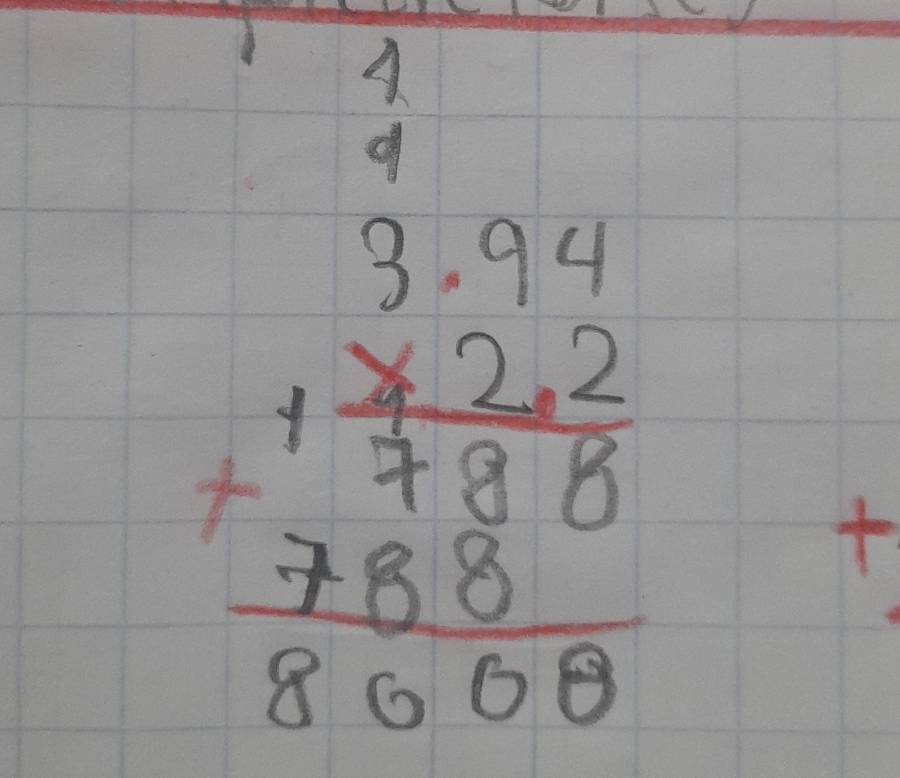 1
1
3.94
x 2.2
1 1
+ 788
788
8668
+